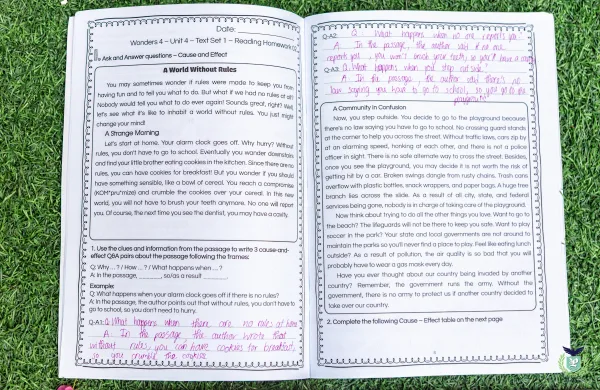 Date:
Wonders 4 – Unit 4 – Text Set 1 – Reading Homework
Ask and Answer questions – Cause and Effect
A World Without Rules
You may sometimes wonder if rules were made to keep you from
having fun and to tell you what to do. But what if we had no rules at all?
Nobody would tell you what to do ever again! Sounds great, right? Well,
let's see what it's like to inhabit a world without rules. You just might
change your mind!
A Strange Morning
Let's start at home. Your alarm clock goes off. Why hurry? Without
rules, you don't have to go to school. Eventually you wander downstairs
and find your little brother eating cookies in the kitchen. Since there are no
rules, you can have cookies for breakfast! But you wonder if you should
have something sensible, like a bowl of cereal. You reach a compromise
(KOM*pru*mize) and crumble the cookies over your cereal. In this new
world, you will not have to brush your teeth anymore. No one will report
you. Of course, the next time you see the dentist, you may have a cavity.
1. Use the clues and information from the passage to write 3 cause-and-
effect Q&A pairs about the passage following the frames:
Q: Why ...? / How ...? / What happens when ...?
A: In the passage, ______, so/as a result ______.
Example:
Q: What happens when your alarm clock goes off if there is no rules?
A: In the passage, the author points out that without rules, you don't have to
go to school, so you don't need to hurry.
Q-A1: Q. What happens when there are no rules at home
A. In the passage, the author wrote that
without rules, you can have cookies for breakfast,
so you crumble the cookies.
Q-A2: Q. What happens when no one reports you
A. In the passage, the author said if no one
report you, you won't brush your teeth, so you'll have a cavity
Q-A3: Q. What happens when you step outside?
A. In the passage, the author said there's no
law saying you have to go to school, so you go to the
playground
A Community in Confusion
Now, you step outside. You decide to go to the playground because
there's no law saying you have to go to school. No crossing guard stands
at the corner to help you across the street. Without traffic laws, cars zip by
at an alarming speed, honking at each other, and there is not a police
officer in sight. There is no safe alternative way to cross the street. Besides,
once you see the playground, you may decide it is not worth the risk of
getting hit by a car. Broken swings dangle from rusty chains. Trash cans
overflow with plastic bottles, snack wrappers, and paper bags. A huge tree
branch lies across the slide. As a result of all city, state, and federal
services being gone, nobody is in charge of taking care of the playground.
Now think about trying to do all the other things you love. Want to go to
the beach? The lifeguards will not be there to keep you safe. Want to play
soccer in the park? Your state and local governments are not around to
maintain the parks so you'll never find a place to play. Feel like eating lunch
outside? As a result of pollution, the air quality is so bad that you will
probably have to wear a gas mask every day.
Have you ever thought about our country being invaded by another
country? Remember, the government runs the army. Without the
government, there is no army to protect us if another country decided to
take over our country.
2. Complete the following Cause – Effect table on the next page